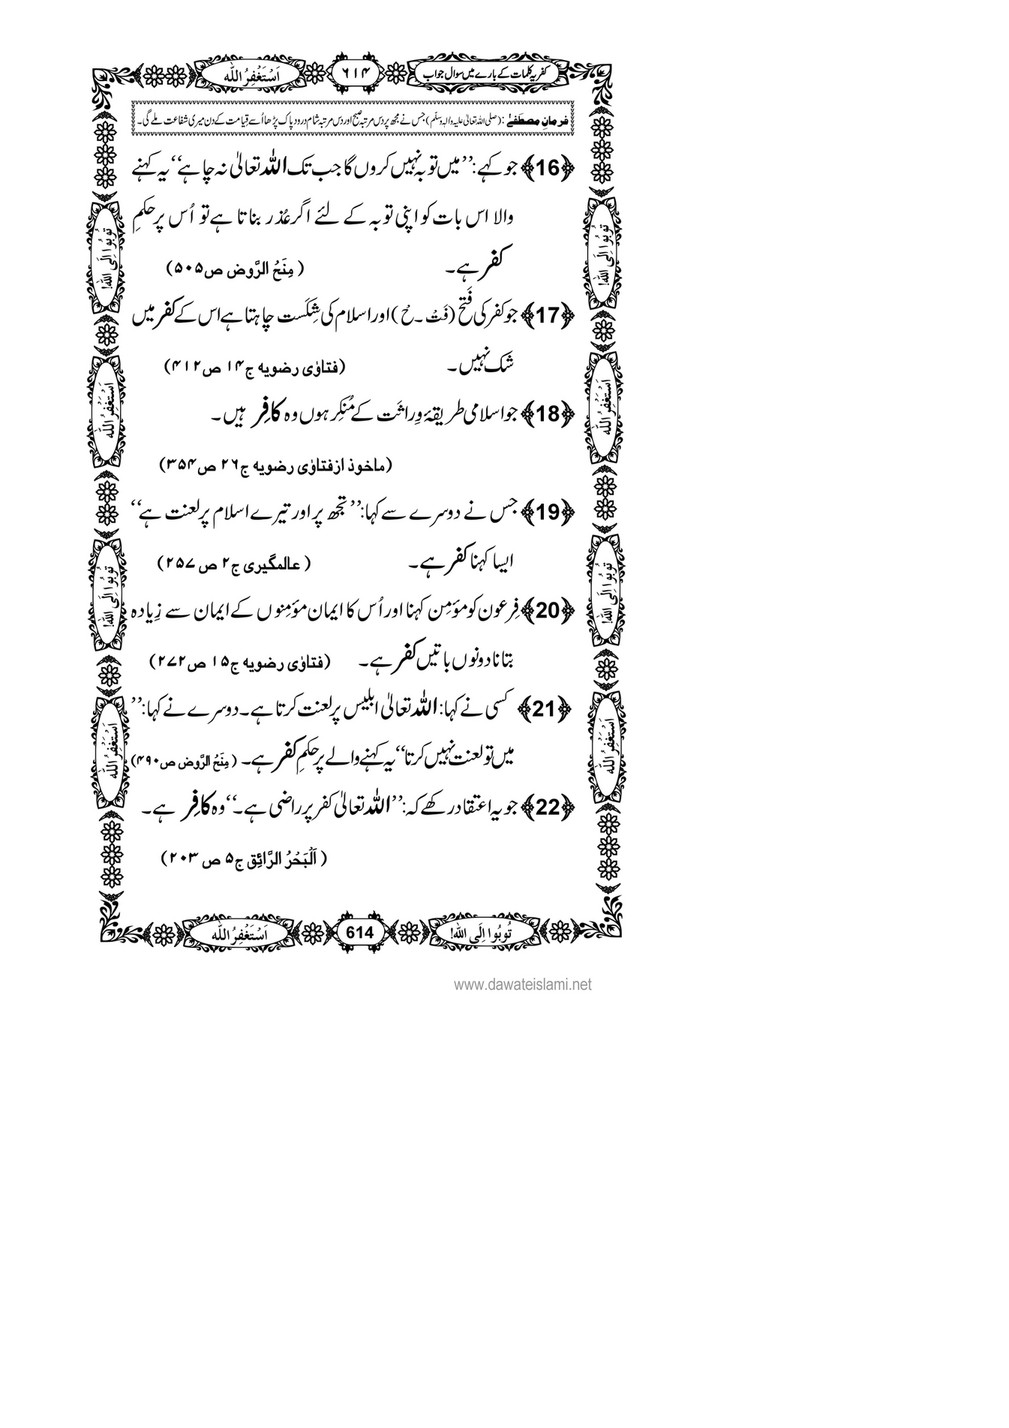 کفریہ کلمات کے بارے میں سوال جواب ۶۱۴ اَسْتَغْفِرُاللّٰه
فرمانِ مصطفےٰ: (صلی اللہ تعالیٰ علیہ والہ وسلّم) جس نے مجھ پر دس مرتبہ صبح اور دس مرتبہ شام درود پاک پڑھا اُسے قِیامت کے دن میری شفاعت ملے گی۔
﴿16﴾ جو کہے: ’’میں توبہ نہیں کروں گا جب تک اللّٰہ تعالیٰ نہ چاہے‘‘ یہ کہنے
والا اس بات کو اپنی توبہ کے لئے اگر عُذر بناتا ہے تو اُس پر حکمِ
کفر ہے۔ (مِنَحُ الرَّوض ص۵۰۵)
﴿17﴾ جو کفر کی فَتْح (فَتْ۔حْ) اور اسلام کی شِکَست چاہتا ہے اس کے کفر میں
شک نہیں۔ (فتاوٰی رضویہ ج۱۴ ص۴۱۲)
﴿18﴾ جو اسلامی طریقۂ وِراثَت کے مُنکِر ہوں وہ کافِر ہیں۔
(ماخوذ از فتاوٰی رضویہ ج۲۶ ص۳۵۴)
﴿19﴾ جس نے دوسرے سے کہا: ’’تجھ پر اور تیرے اسلام پر لعنت ہے‘‘
ایسا کہنا کفر ہے۔ (عالمگیری ج۲ ص۲۵۷)
﴿20﴾ فِرعون کو مؤمِن کہنا اور اُس کا ایمان مؤمِنوں کے ایمان سے زِیادہ
بتانا دونوں باتیں کفر ہے۔ (فتاوٰی رضویہ ج۱۵ ص۲۷۲)
﴿21﴾ کسی نے کہا: اللّٰہ تعالیٰ ابلیس پر لعنت کرتا ہے۔ دوسرے نے کہا: ’’
میں تو لعنت نہیں کرتا‘‘ یہ کہنے والے پر حکمِ کفر ہے۔ (مِنَحُ الرَّوض ص۴۹۰)
﴿22﴾ جو یہ اعتقاد رکھے کہ: ’’اللّٰہ تعالیٰ کفر پر راضی ہے۔‘‘ وہ کافِر ہے۔
(اَلْبَحْرُ الرَّائِق ج۵ ص۲۰۳)
تُوبُوا اِلَی اللّٰه!
اَسْتَغْفِرُاللّٰه
تُوبُوا اِلَی اللّٰه!
اَسْتَغْفِرُاللّٰه
تُوبُوا اِلَی اللّٰه!
اَسْتَغْفِرُاللّٰه
تُوبُوا اِلَی اللّٰه!
اَسْتَغْفِرُاللّٰه
تُوبُوا اِلَی اللّٰه! 614 اَسْتَغْفِرُاللّٰه
www.dawateislami.net